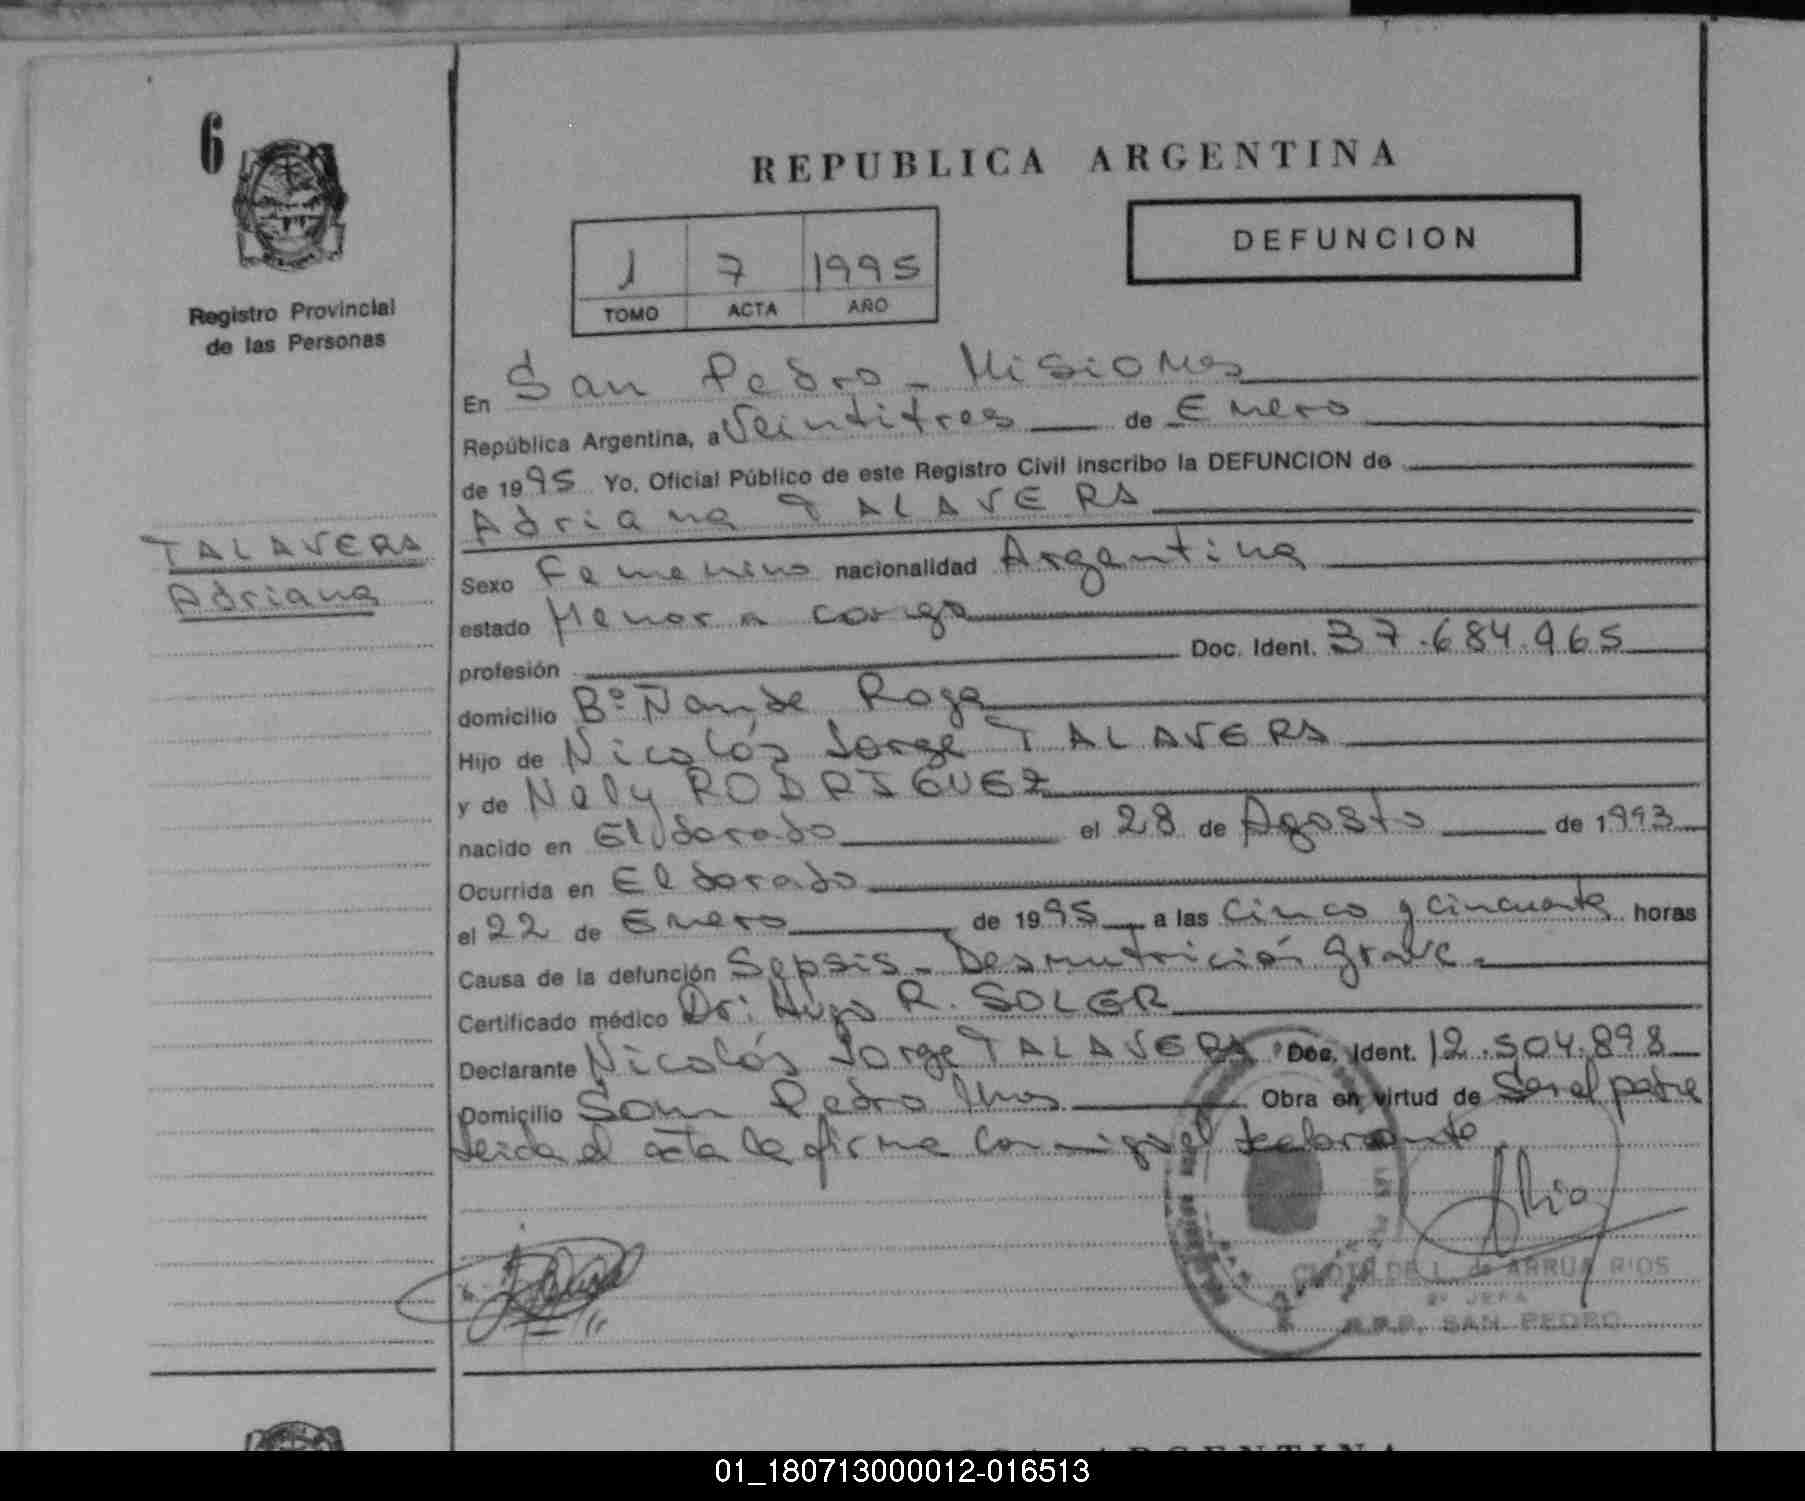 6
REPUBLICA ARGENTINA
DEFUNCION
1 7 1995
TOMO ACTA AÑO
Registro Provincial
de las Personas
TALAVERA
Adriana
En San Pedro - Misiones
República Argentina, a Veintitres de Enero
de 1995 Yo, Oficial Público de este Registro Civil inscribo la DEFUNCION de
Adriana TALAVERA
Sexo Femenino nacionalidad Argentina
estado Menor a cargo
profesión Doc. Ident. 37.684.965
domicilio Bº Ñande Roga
Hijo de Nicolás Jorge TALAVERA
y de Nely RODRIGUEZ
nacido en Eldorado el 28 de Agosto de 1993
Ocurrida en Eldorado
el 22 de Enero de 1995 a las Cinco y cincuenta horas
Causa de la defunción Sepsis - Desnutrición grave.
Certificado médico Dr: Hugo R. SOLER
Declarante Nicolás Jorge TALAVERA Doc. Ident. 12.504.898
Domicilio San Pedro Mnes Obra en virtud de Ser el padre
Leida el acta la firma conmigo el declarante
DE ARRUA RIOS
2º JEFA
R.P.P. SAN PEDRO
01_180713000012-016513